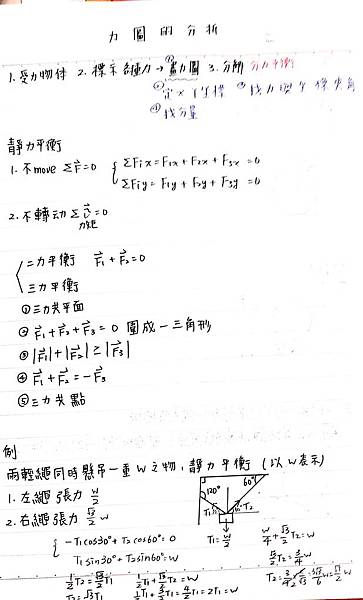 力圖的分析
1. 受力物体 2. 標示各種力→①畫力圖 3. 分辨 分力平衡
②定x Y坐標 ③找力與坐標夾角
④找分量
靜力平衡
1. 不move ΣF⃗=0 { ΣFix = F1x + F2x + F3x = 0
ΣFiy = F1y + F2y + F3y = 0
2. 不轉動 Στ⃗=0
力矩
二力平衡 F⃗1+F⃗2=0
三力平衡
①三力共平面
②F⃗1+F⃗2+F⃗3=0 圍成一三角形
③|F⃗1|+|F⃗2|≥|F⃗3|
④F⃗1+F⃗2=-F⃗3
⑤三力共點
例
兩輕繩同時懸吊一重W之物,靜力平衡(以W表示)
1. 左繩張力 W/2
2. 右繩張力 √3/2 W
120° 60°
T1 T2
{ -T1cos30°+T2cos60°=0
T1sin30°+T2sin60°=W
T1=W/2
W/4+√3/2 T2=W
√3/2 T2=3/4 W
1/2 T2=√3/2 T1
1/2 T1+√3/2 T2=W
T2=√3 T1
1/2 T1+3/2 T1=4/2 T1=2T1=W